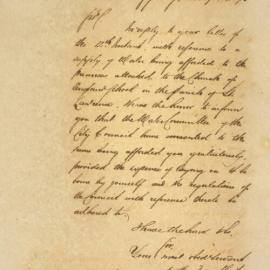 In reply to your letter of
the 21st Instant, with reference to a
supply of Water being afforded to the
premises attached to the Church of
England School in the Parish of St
Lawrence, I have the honor to inform
you that the Water Committee of the
City Council have consented to the
same being afforded you gratuitously,
provided the expense of laying on to be
borne by yourself and the regulations of
the Council with reference thereto be
adhered to
I have the honor &c,
Sir
Your most obed Servant